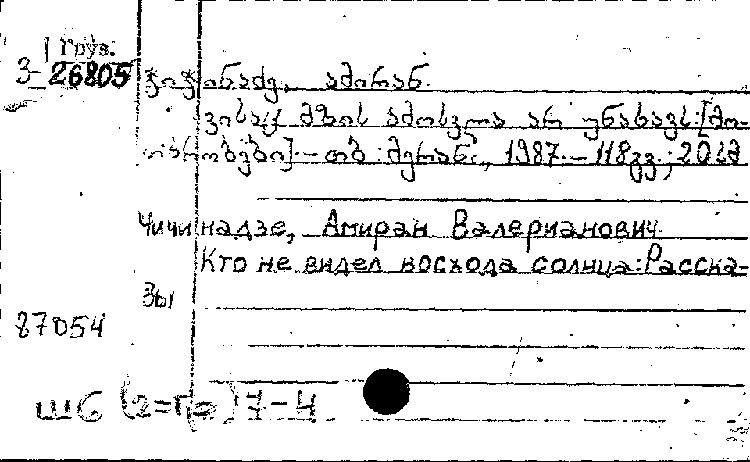 Груз.
3-26805
ჭიჭინაძე, ამირან.
ვისაც მზის ამოსვლა არ უნახავს: [მო-
თხრობები]. — თბ.: მერანი, 1987. — 118 გვ.; 20 სმ
Чичинадзе, Амиран Валерианович.
Кто не видел восхода солнца: Расска-
зы
87054
Ш6 (2=Гр) 7-4